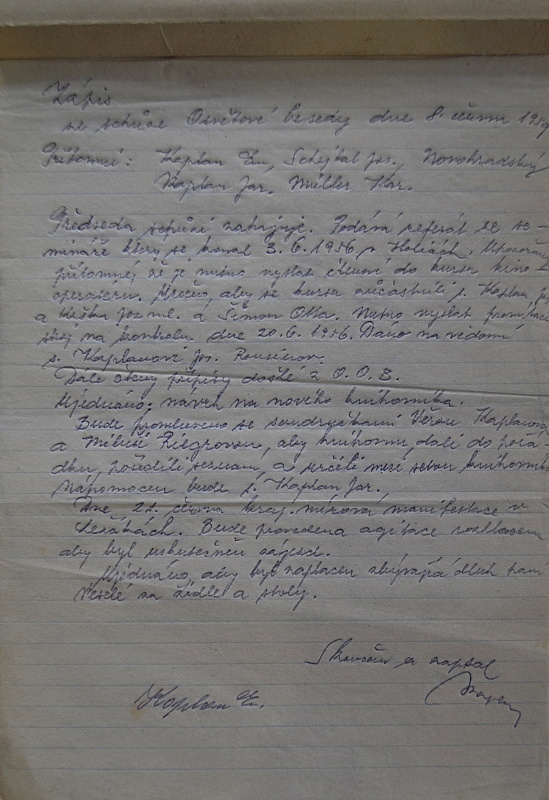 Zápis
ze schůze Osvětové besedy dne 8. června 1956
Přítomni: Kaplan En., Schejbal Jos., Novohradský
Kaplan Jar. Müller Kar.
Předseda schůzi zahajuje. Podává referát ze se-
mináře který se konal 3.6.1956 v Holicích. Upozorňuje
přítomné, že je nutno vyslat členy do kursu kino-
operatérů. Určeno, aby se kursu zúčastnili s. Kaplan Jos.
a Jos. ml. a Šimon Ota. Nutno vyslat promítací
stroj na kontrolu dne 20.6.1956. Dáno na vědomí
s. Kaplanovi Jos.
Dále čteny přípisy došlé z O.O.B.
Ujednáno: návrh na nového knihovníka.
Bude promluveno se soudružkami Věrou Kaplanovou
a Miluší Riegrovou, aby knihovnu dali do pořá-
dku, pořídili seznam, a určili mezi sebou knihovníka
Nápomocen bude s. Kaplan Jar.
Dne 21. června kraj. mírová manifestace v
Ležákách. Bude provedena agitace rozhlasem
aby byl uskutečněn zájezd.
Ujednáno, aby byl zaplacen zbývající dluh paní
Veselé za židle a stoly.
Skončeno a zapsal
Kaplan En.